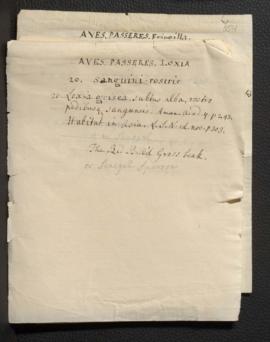 AVES. PASSERES. Fringilla.
AVES. PASSERES. LOXIA
20. sanguini rostris
20 Loxia grisea, subtus alba, rostro
pedibusq. sanguineis. Amæn. Acad. 4. p. 243.
Habitat in Asia. L.S.N. ed. 10. p. 303.
The Red Billd Gross beak.
or Senegal Sparrow